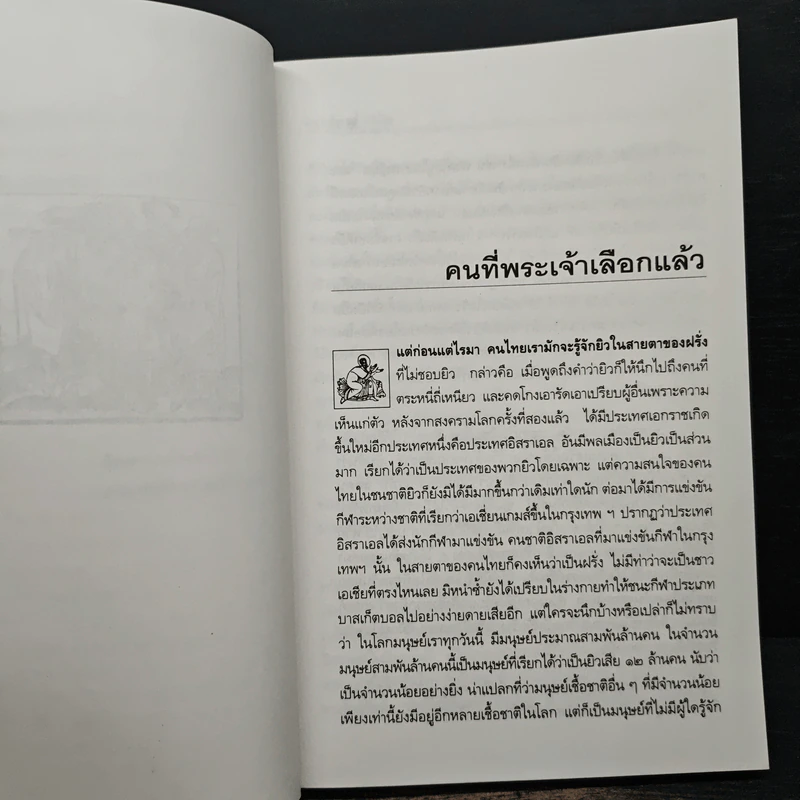 คนที่พระเจ้าเลือกแล้ว
แต่ก่อนแต่ไรมา คนไทยเรามักจะรู้จักยิวในสายตาของฝรั่ง
ที่ไม่ชอบยิว กล่าวคือ เมื่อพูดถึงคำว่ายิวก็ให้นึกไปถึงคนที่
ตระหนี่ถี่เหนียว และคดโกงเอารัดเอาเปรียบผู้อื่นเพราะความ
เห็นแก่ตัว หลังจากสงครามโลกครั้งที่สองแล้ว ได้มีประเทศเอกราชเกิด
ขึ้นใหม่อีกประเทศหนึ่งคือประเทศอิสราเอล อันมีพลเมืองเป็นยิวเป็นส่วน
มาก เรียกได้ว่าเป็นประเทศของพวกยิวโดยเฉพาะ แต่ความสนใจของคน
ไทยในชนชาติยิวก็ยังมิได้มีมากขึ้นกว่าเดิมเท่าใดนัก ต่อมาได้มีการแข่งขัน
กีฬาระหว่างชาติที่เรียกว่าเอเชี่ยนเกมส์ขึ้นในกรุงเทพ ฯ ปรากฏว่าประเทศ
อิสราเอลได้ส่งนักกีฬามาแข่งขัน คนชาติอิสราเอลที่มาแข่งขันกีฬาในกรุง
เทพฯ นั้น ในสายตาของคนไทยก็คงเห็นว่าเป็นฝรั่ง ไม่มีท่าว่าจะเป็นชาว
เอเชียที่ตรงไหนเลย มิหนำซ้ำยังได้เปรียบในร่างกายทำให้ชนะกีฬาประเภท
บาสเก็ตบอลไปอย่างง่ายดายเสียอีก แต่ใครจะนึกบ้างหรือเปล่าก็ไม่ทราบ
ว่า ในโลกมนุษย์เราทุกวันนี้ มีมนุษย์ประมาณสามพันล้านคน ในจำนวน
มนุษย์สามพันล้านคนนี้เป็นมนุษย์ที่เรียกได้ว่าเป็นยิวเสีย ๑๒ ล้านคน นับว่า
เป็นจำนวนน้อยอย่างยิ่ง น่าแปลกที่ว่ามนุษย์เชื้อชาติอื่น ๆ ที่มีจำนวนน้อย
เพียงเท่านี้ยังมีอยู่อีกหลายเชื้อชาติในโลก แต่ก็เป็นมนุษย์ที่ไม่มีผู้ใดรู้จัก